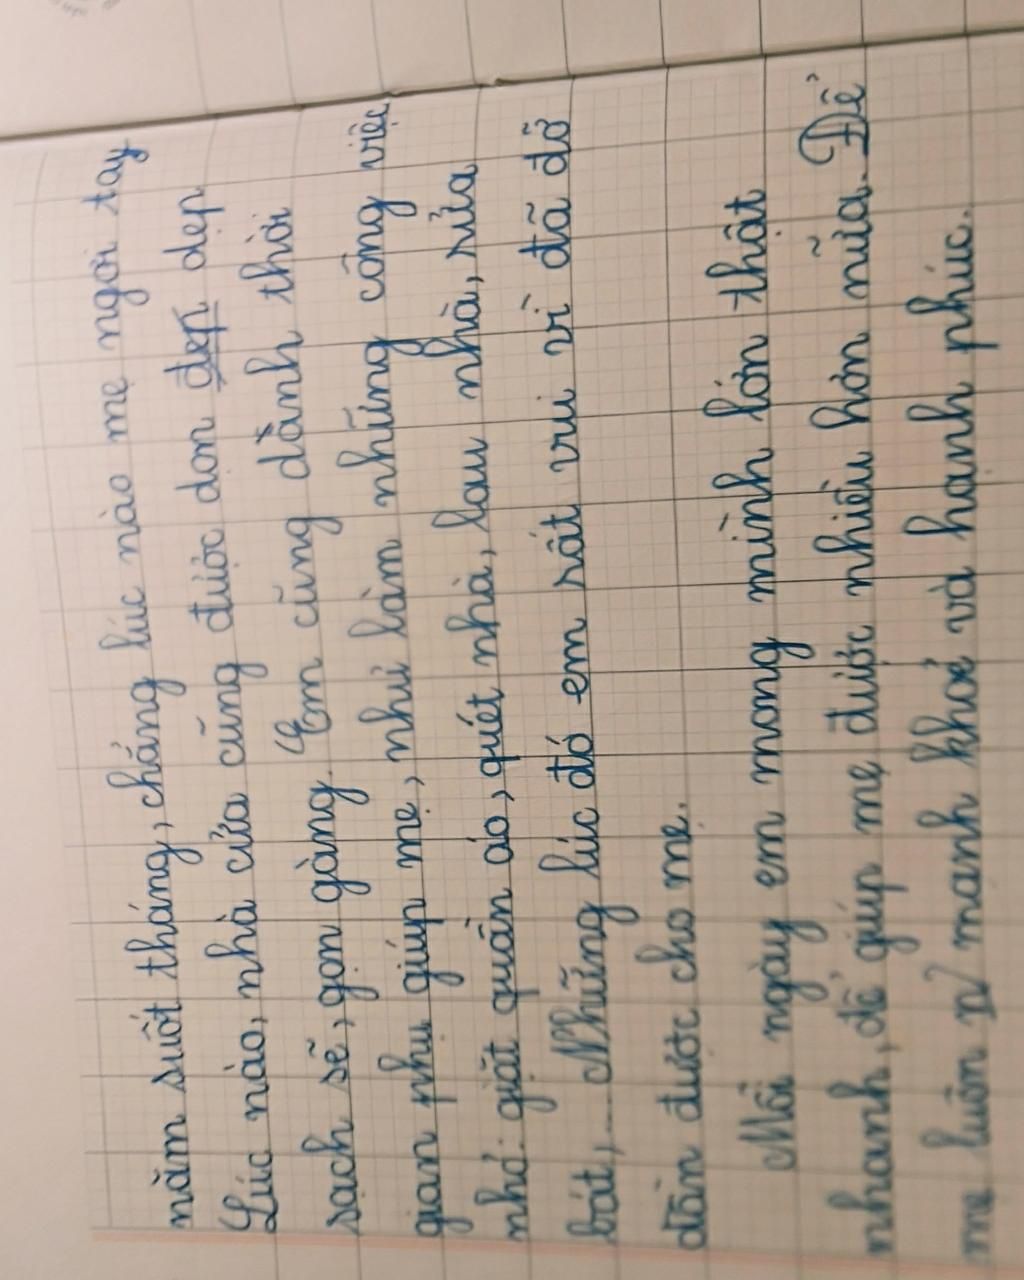 năm suốt tháng, chẳng lúc nào mẹ ngơi tay
Lúc nào, nhà cửa cũng được dọn dẹp dẹp
sạch sẽ, gọn gàng. Em cũng dành thời
gian phụ giúp mẹ, như làm những công việc
nhỏ: giặt quần áo, quét nhà, lau nhà, rửa
bát,... Những lúc đó em rất vui vì đã đỡ
đần được cho mẹ.
Mỗi ngày em mong mình lớn thật
nhanh, để giúp mẹ được nhiều hơn nữa. Để
mẹ luôn mạnh khoẻ và hạnh phúc.